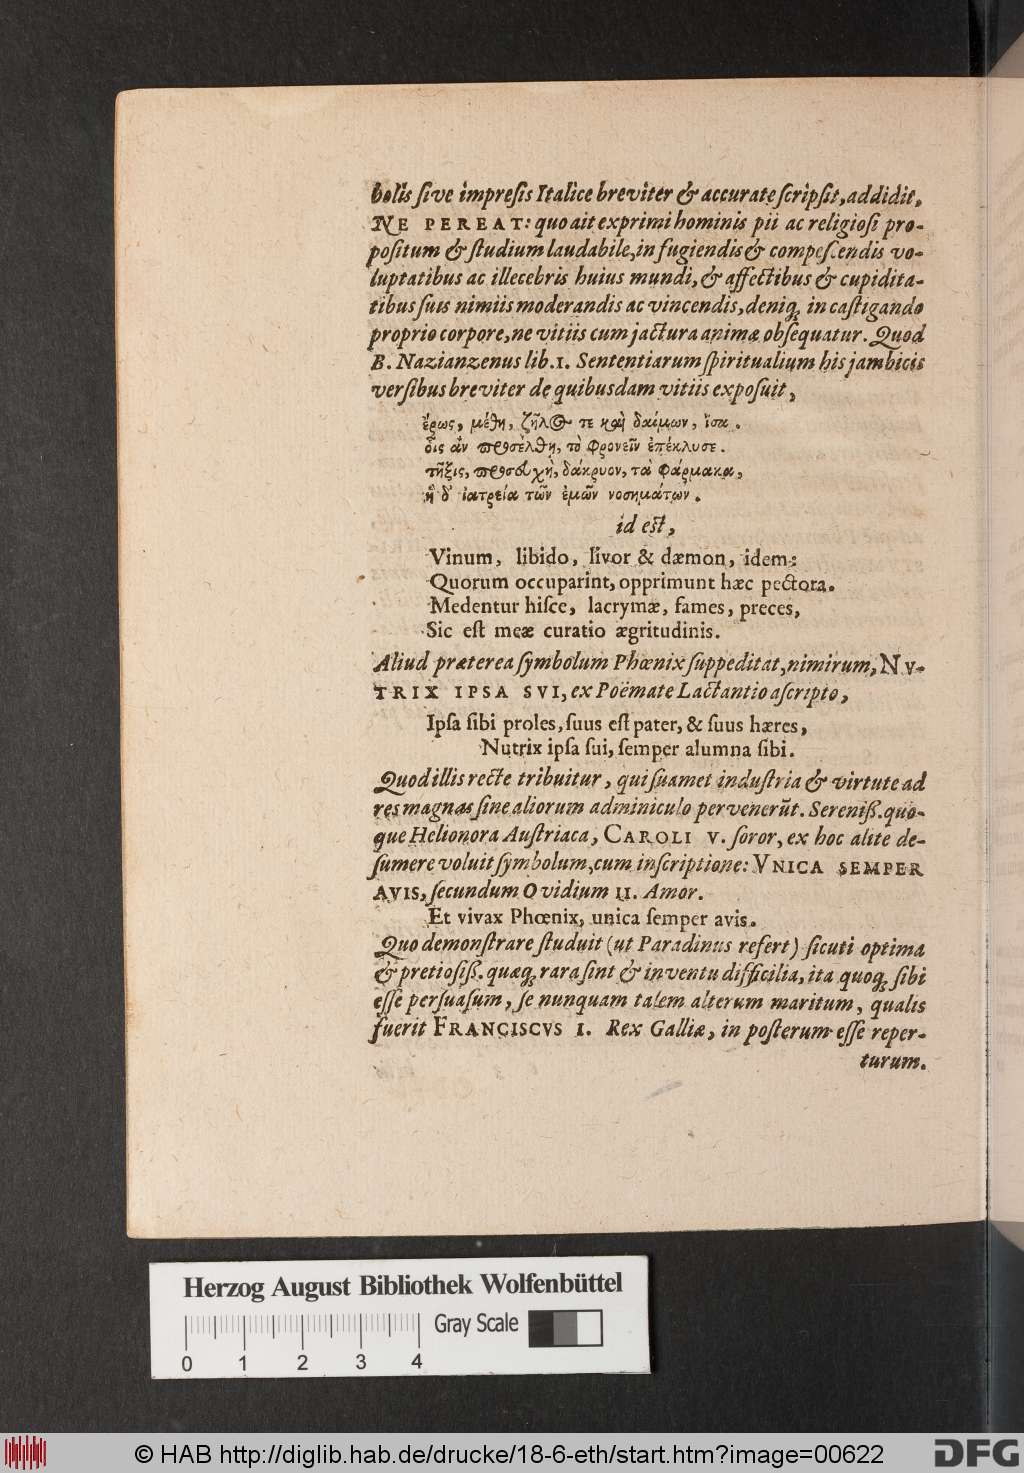 bolis ſive impreſis Italice breviter & accurate ſcripſit, addidit,
NE PEREAT: quo ait exprimi hominis pii ac religioſi pro-
poſitum & ſtudium laudabile, in fugiendis & compeſcendis vo-
luptatibus ac illecebris huius mundi, & affectibus & cupidita-
tibus ſuis nimiis moderandis ac vincendis, deniq; in caſtigando
proprio corpore, ne vitiis cum jactura animæ obſequatur. Quod
B. Nazianzenus lib. I. Sententiarum ſpiritualium his jambicis
verſibus breviter de quibusdam vitiis expoſuit,
ἔρως, μέθη, ζῆλος τε καὶ δαίμων, ἴσα.
οἷς ἂν προσέλθη, τὸ φρονεῖν ἐπέκλυσε.
τῆξις, προσευχὴ, δάκρυον, τὰ φάρμακα,
ἥ δ' ἰατρεία τῶν ἐμῶν νοσημάτων.
id eſt,
Vinum, libido, livor & dæmon, idem:
Quorum occuparint, opprimunt hæc pectora.
Medentur hiſce, lacrymæ, fames, preces,
Sic eſt meæ curatio ægritudinis.
Aliud præterea ſymbolum Phœnix ſuppeditat, nimirum, NV-
TRIX IPSA SVI, ex Poëmate Lactantio aſcripto,
Ipſa ſibi proles, ſuus eſt pater, & ſuus hæres,
Nutrix ipſa ſui, ſemper alumna ſibi.
Quod illis recte tribuitur, qui ſuamet induſtria & virtute ad
res magnas ſine aliorum adminiculo pervenerūt. Sereniß. quo-
que Helionora Auſtriaca, CAROLI V. ſoror, ex hoc alite de-
ſumere voluit ſymbolum, cum inſcriptione: VNICA SEMPER
AVIS, ſecundum Ovidium II. Amor.
Et vivax Phœnix, unica ſemper avis.
Quo demonſtrare ſtuduit (ut Paradinus refert) ſicuti optima
& pretioſiß. quæq; rara ſint & inventu difficilia, ita quoq; ſibi
eſſe perſuaſum, ſe nunquam talem alterum maritum, qualis
fuerit FRANCISCVS I. Rex Galliæ, in poſterum eſſe reper-
turum.
Herzog August Bibliothek Wolfenbüttel
Gray Scale
0 1 2 3 4
© HAB http://diglib.hab.de/drucke/18-6-eth/start.htm?image=00622
DFG